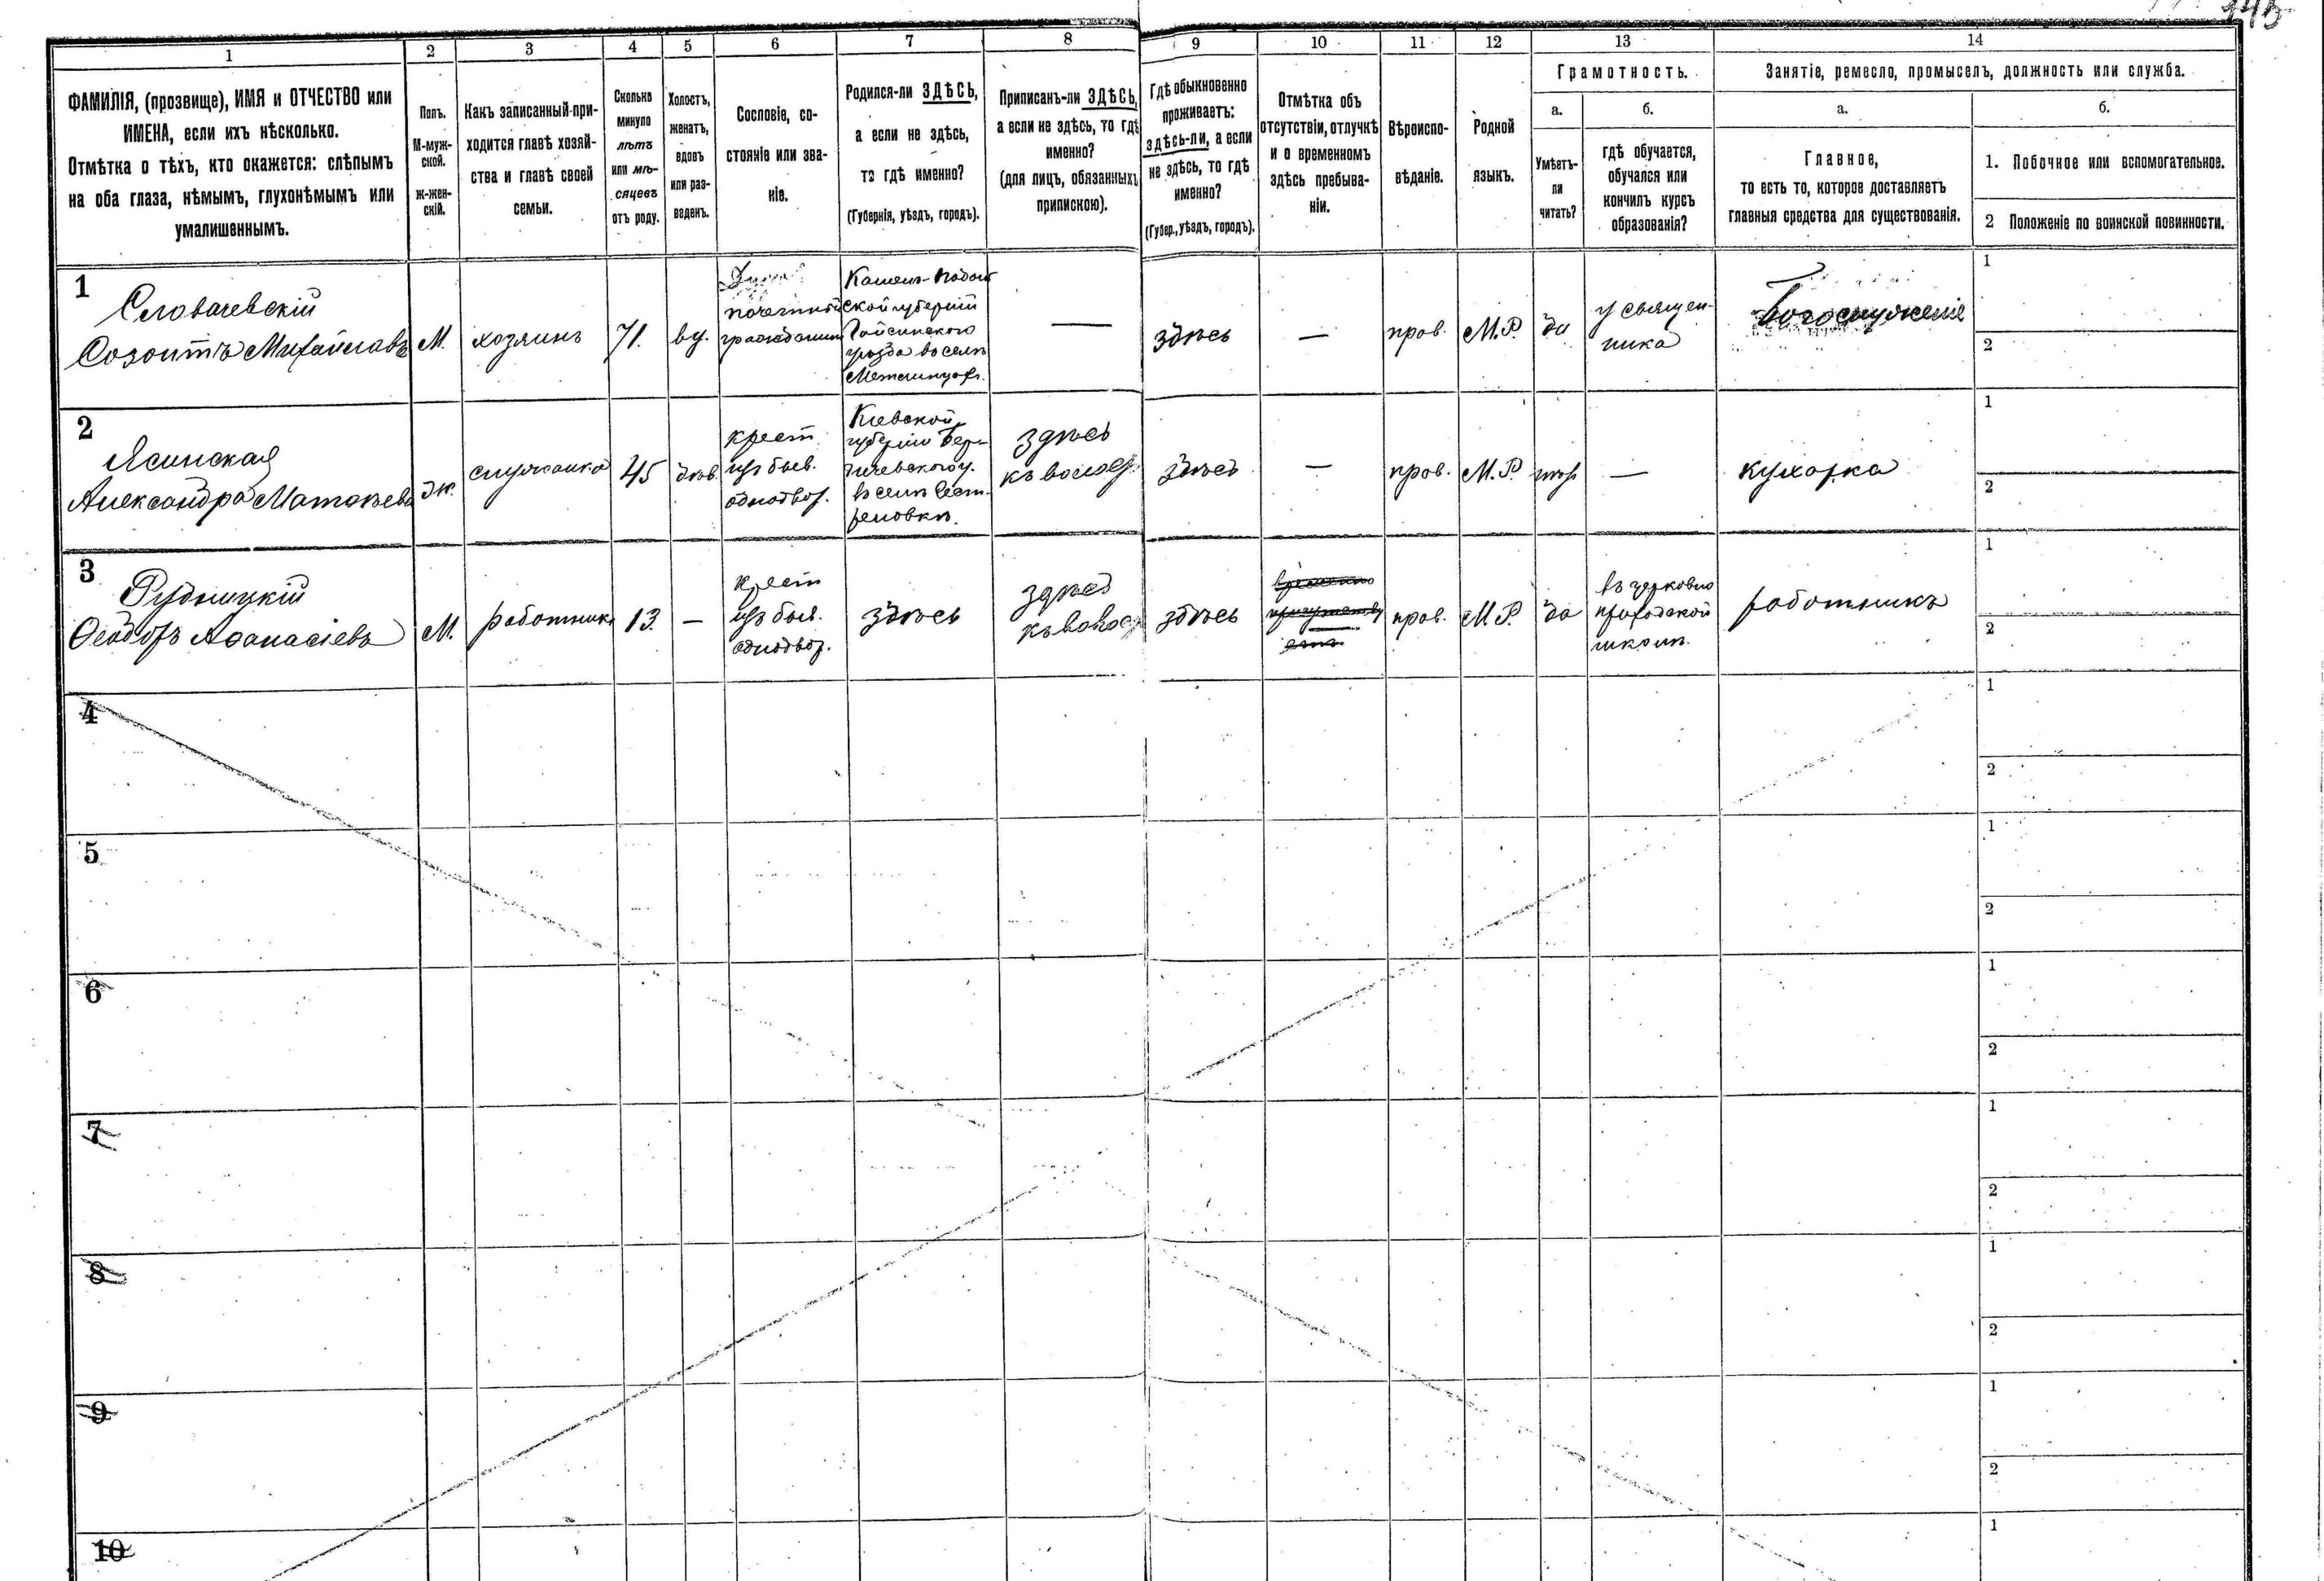 145
1 2 3 4 5 6 7 8 9 10 11 12 13 14
ФАМИЛІЯ, (прозвище), ИМЯ и ОТЧЕСТВО или
ИМЕНА, если ихъ нѣсколько.
Отмѣтка о тѣхъ, кто окажется: слѣпымъ
на оба глаза, нѣмымъ, глухонѣмымъ или
умалишеннымъ.
Полъ.
М-муж-
ской.
ж-жен-
скій.
Какъ записанный при-
ходится главѣ хозяй-
ства и главѣ своей
семьи.
Сколько
минуло
лѣтъ
или мѣ-
сяцевъ
отъ роду.
Холостъ,
женатъ,
вдовъ
или раз-
веденъ.
Сословіе, со-
стояніе или зва-
ніе.
Родился-ли ЗДѢСЬ,
а если не здѣсь,
то гдѣ именно?
(Губернія, уѣздъ, городъ).
Приписанъ-ли ЗДѢСЬ,
а если не здѣсь, то гдѣ
именно?
(для лицъ, обязанныхъ
припискою).
Гдѣ обыкновенно
проживаетъ:
здѣсь-ли, а если
не здѣсь, то гдѣ
именно?
(Губер., уѣздъ, городъ).
Отмѣтка объ
отсутствіи, отлучкѣ
и о временномъ
здѣсь пребыва-
ніи.
Вѣроиспо-
вѣданіе.
Родной
языкъ.
Грамотность.
а.
Умѣетъ-
ли
читать?
б.
гдѣ обучается,
обучался или
кончилъ курсъ
образованія?
Занятіе, ремесло, промыселъ, должность или служба.
а.
Главное,
то есть то, которое доставляетъ
главныя средства для существованія.
б.
1. Побочное или вспомогательное.
2 Положеніе по воинской повинности.
1
Словачевскій
Созонтъ Михайловъ
М.
хозяинъ
71.
вд.
гражданинъ
Гайсинскаго
уѣзда въ селѣ
—
здѣсь
—
прав.
М.Р.
да
у священ-
ника
Богослуженіе
1
2
2
Ясинская
Александра
ж.
служанка
45
дѣв.
крест.
изъ быв.
однодвор.
Кіевской
губерніи Бер-
дичевского у.
въ селѣ
здѣсь
къ волос.
здѣсь
—
прав.
М.Р.
—
кухарка
1
2
3
Рудницкій
Ѳеодоръ Аѳанасіевъ
М.
работникъ
13.
—
крест
изъ быв.
однодвор.
здѣсь
здѣсь
къ волос
здѣсь
временно
прав.
М.Р.
да
въ церковно
приходской
школѣ.
работникъ
1
2
4
1
2
5
1
2
6
1
2
7
1
2
8
1
2
9
1
2
10
1